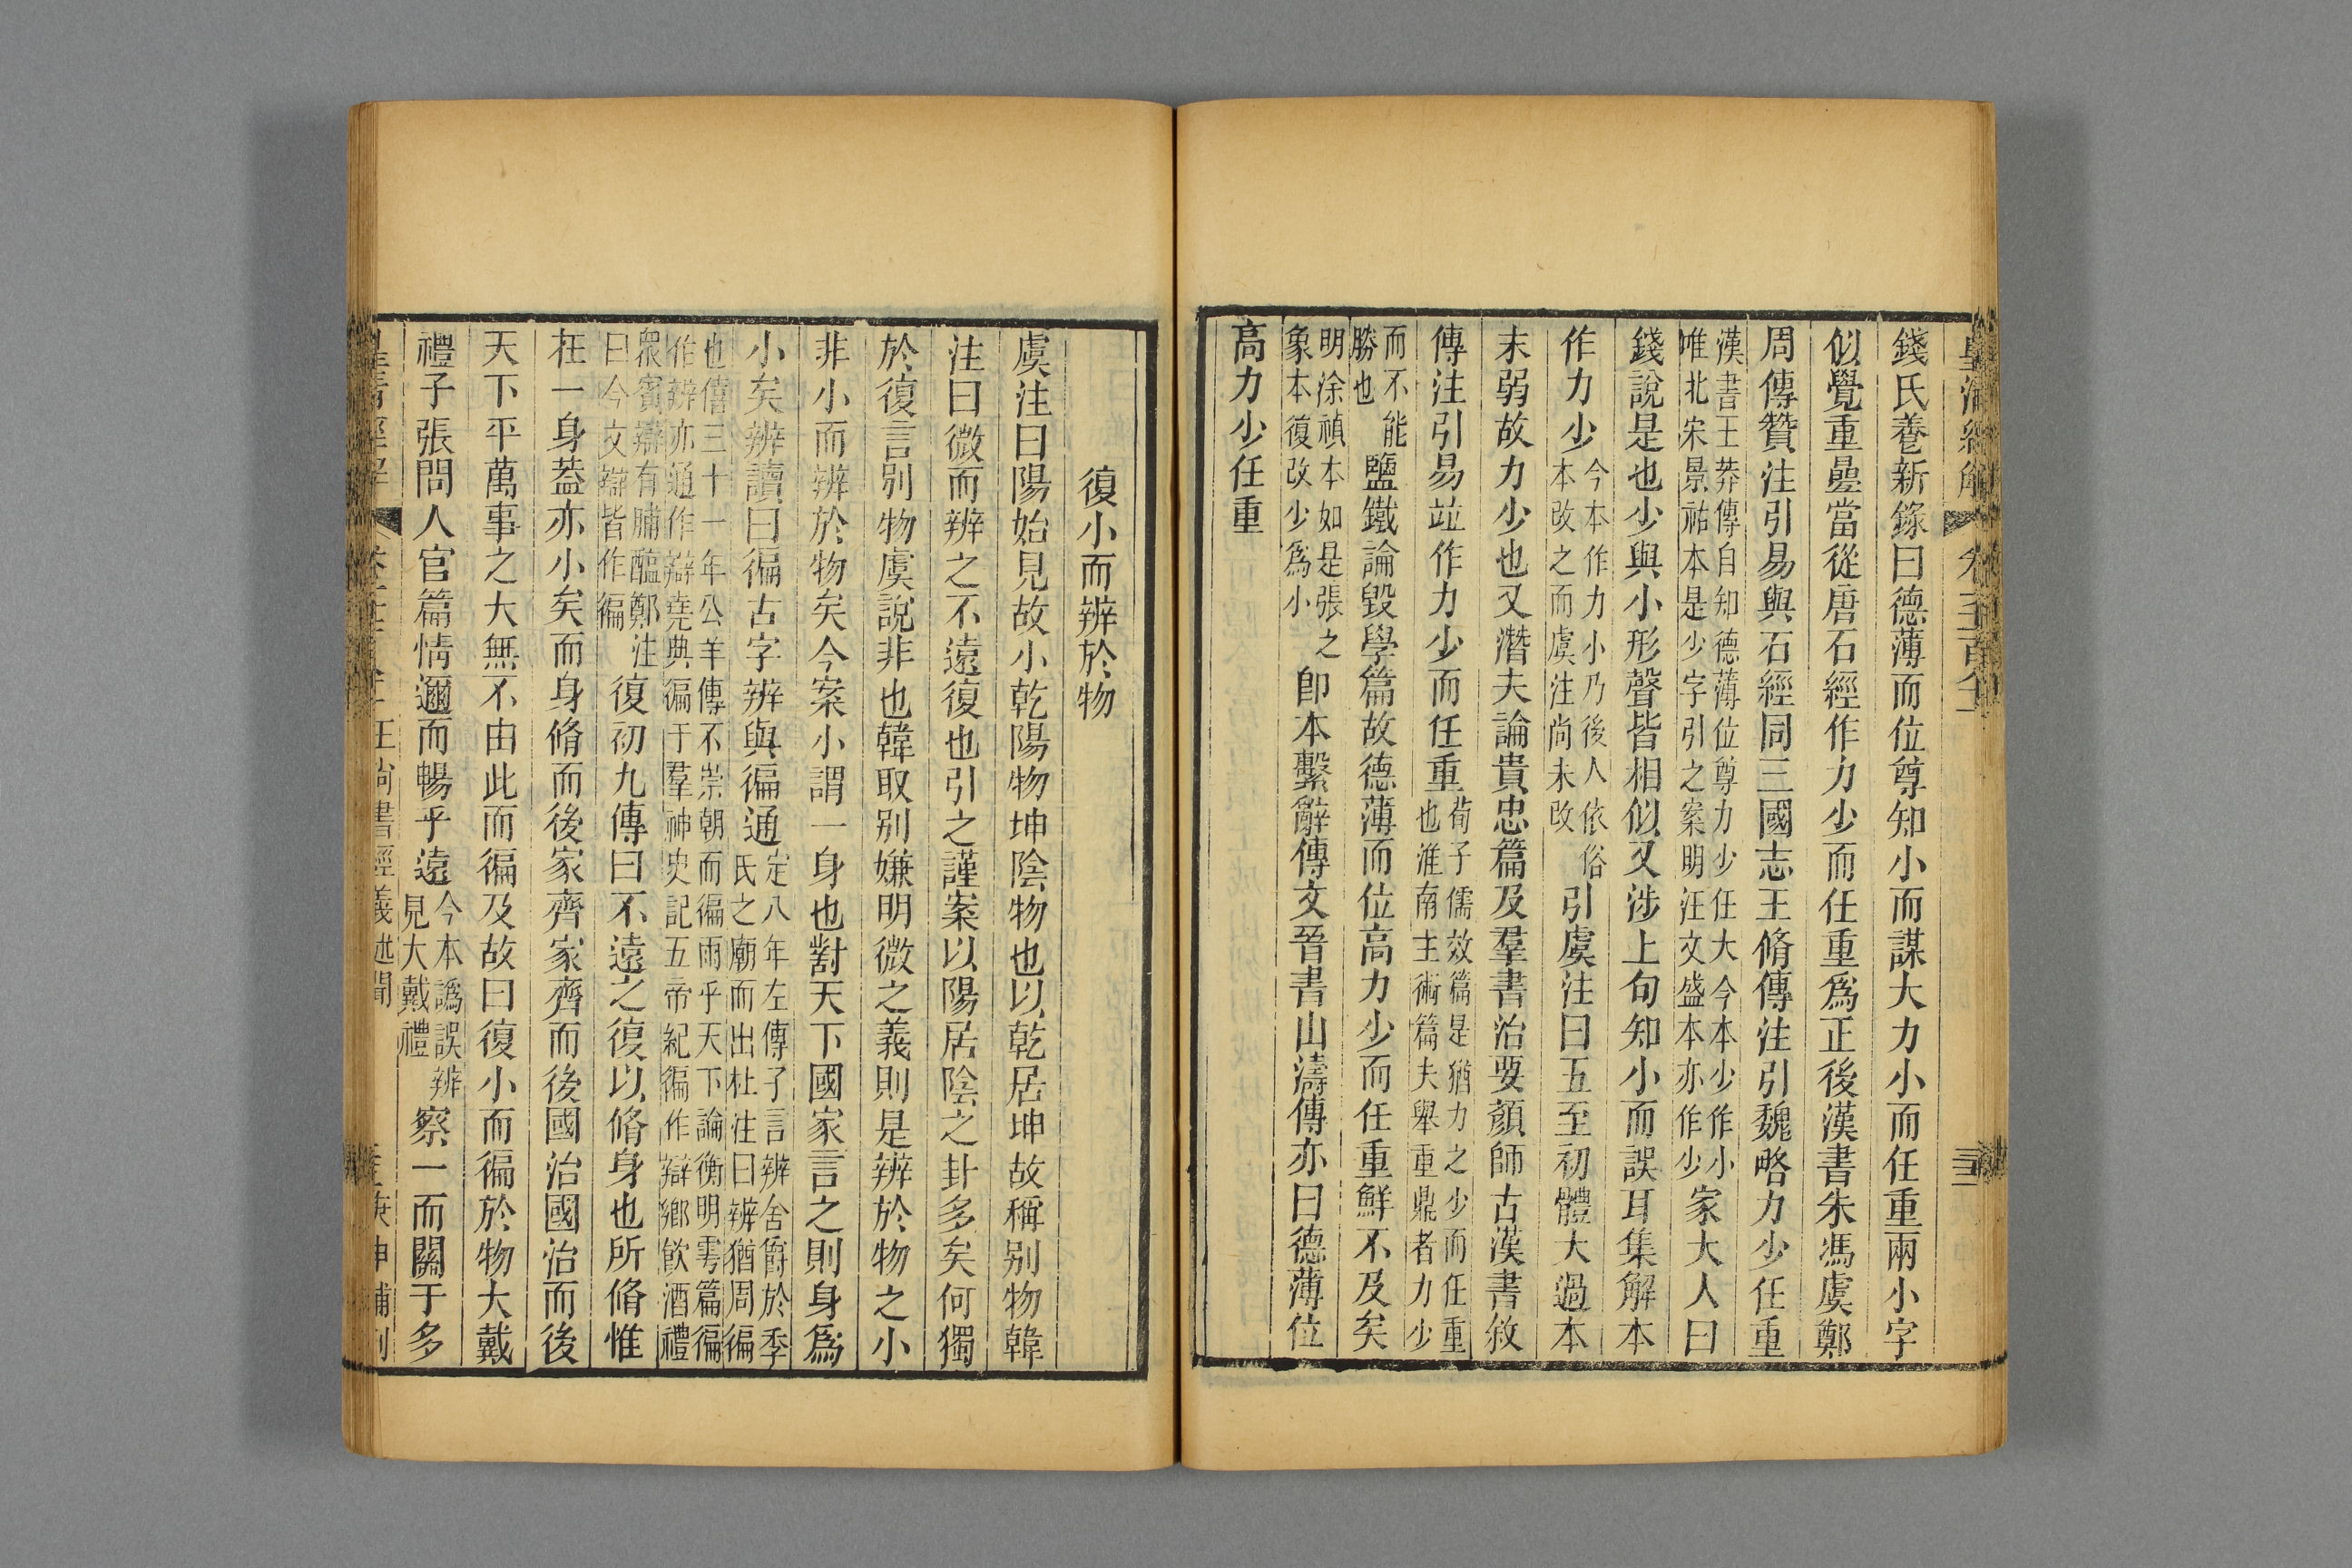 錢氏養新錄曰德薄而位尊知小而謀大力小而任重兩小字
似覺重曡當從唐石經作力少而任重爲正後漢書朱馮虞鄭
周傳贊注引易與石經同三國志王脩傳注引魏略力少任重
漢書王莽傳自知德薄位尊力少任大今本少作小
唯北宋景祐本是少字引之案明汪文盛本亦作少
家大人曰
錢說是也少與小形聲皆相似又涉上句知小而誤耳集解本
作力少
今本作力小乃後人依俗
本改之而虞注尚未改
引虞注曰五至初體大過本
末弱故力少也又潛夫論貴忠篇及羣書治要顏師古漢書敘
傳注引易竝作力少而任重
荀子儒效篇是猶力之少而任重
也淮南主術篇夫舉重鼎者力少
而不能
勝也
鹽鐵論毀學篇故德薄而位高力少而任重鮮不及矣
明涂禎本如是張之
象本復改少爲小
卽本繫辭傳文晉書山濤傳亦曰德薄位
高力少任重
復小而辨於物
虞注曰陽始見故小乾陽物坤陰物也以乾居坤故稱别物韓
注曰微而辨之不遠復也引之謹案以陽居陰之卦多矣何獨
於復言别物虞說非也韓取别嫌明微之義則是辨於物之小
非小而辨於物矣今案小謂一身也對天下國家言之則身爲
小矣辨讀曰徧古字辨與徧通
定八年左傳子言辨舍爵於季
氏之廟而出杜注曰辨猶周徧
也僖三十一年公羊傳不崇朝而徧雨乎天下論衡明雩篇徧
作辨亦通作辯堯典徧于羣神史記五帝紀徧作辯鄉飮酒禮
衆賓辯有脯醢鄭注
曰今文辯皆作徧
復初九傳曰不遠之復以脩身也所脩惟
在一身蓋亦小矣而身脩而後家齊家齊而後國治國治而後
天下平萬事之大無不由此而徧及故曰復小而徧於物大戴
禮子張問人官篇情邇而暢乎遠
今本譌誤辨
見大戴禮
察一而關于多
王尚書經義述聞
庚申補刊